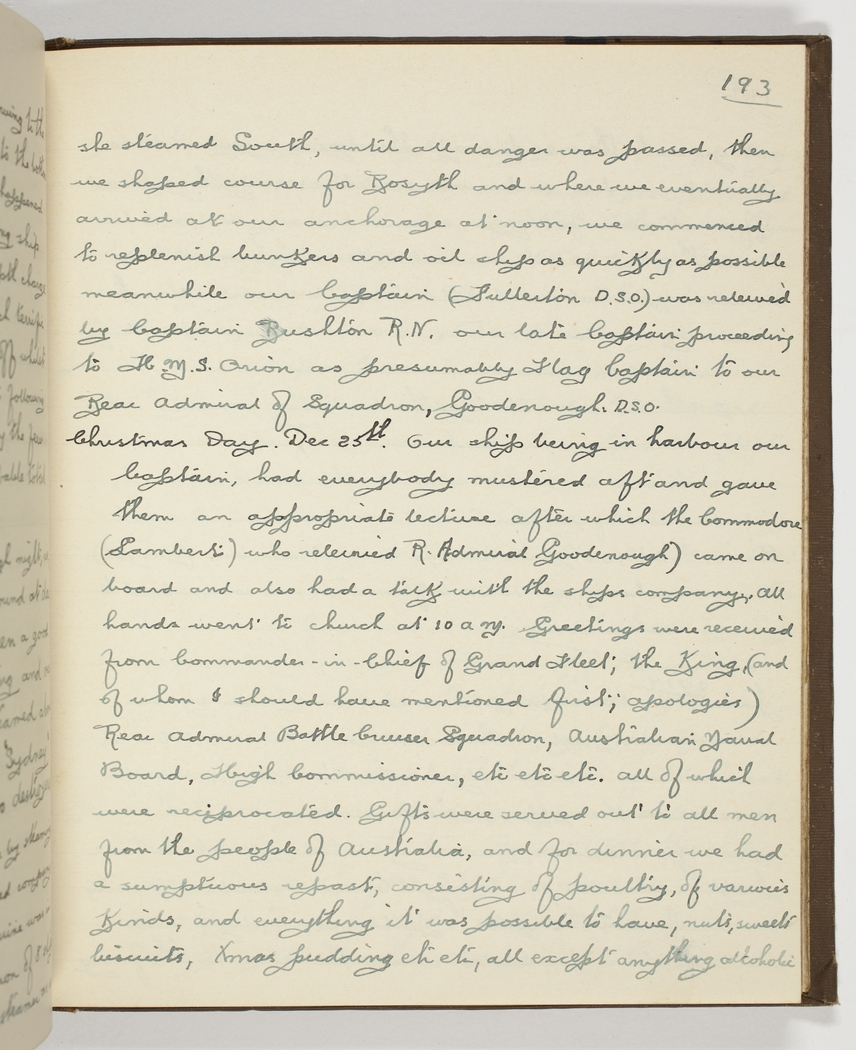 193
she steamed South, until all danger was passed, then
we shaped course for Rosyth and where we eventually
arrived at our anchorage at noon, we commenced
to replenish bunkers and oil ship as quickly as possible
meanwhile our Captain (Fullerton D.S.O.) was releived
by Captain Rushton R.N. our late Captain proceeding
to H.M.S. Orion as presumably Flag Captain to our
Rear Admiral of Squadron, Goodenough. D.S.O.
Christmas Day. Dec 25th. Our ship being in harbour our
Captain, had everybody mustered aft and gave
them an appropriate lecture after which the Commodore
(Lambert) who releived R. Admiral Goodenough) came on
board and also had a talk with the ships company. All
hands went to church at 10 a m. Greetings were received
from Commander-in-Chief of Grand Fleet; the King, (and
of whom I should have mentioned first; apologies)
Rear Admiral Battle Cruiser Squadron, Australian Naval
Board, High Commissioner, etc etc etc. all of which
were reciprocated. Gifts were served out to all men
from the people of Australia, and for dinner we had
a sumptuous repast, consisting of poultry, of various
kinds, and everything it was possible to have, nuts, sweets
biscuits, Xmas pudding etc etc, all except anything alcoholic